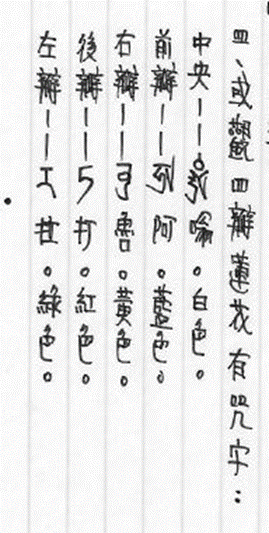 四、或觀四瓣蓮花有咒字：
中央——嗡。白色。
前瓣——阿。藍色。
右瓣——。黃色。
後瓣——打。紅色。
左瓣——世。綠色。